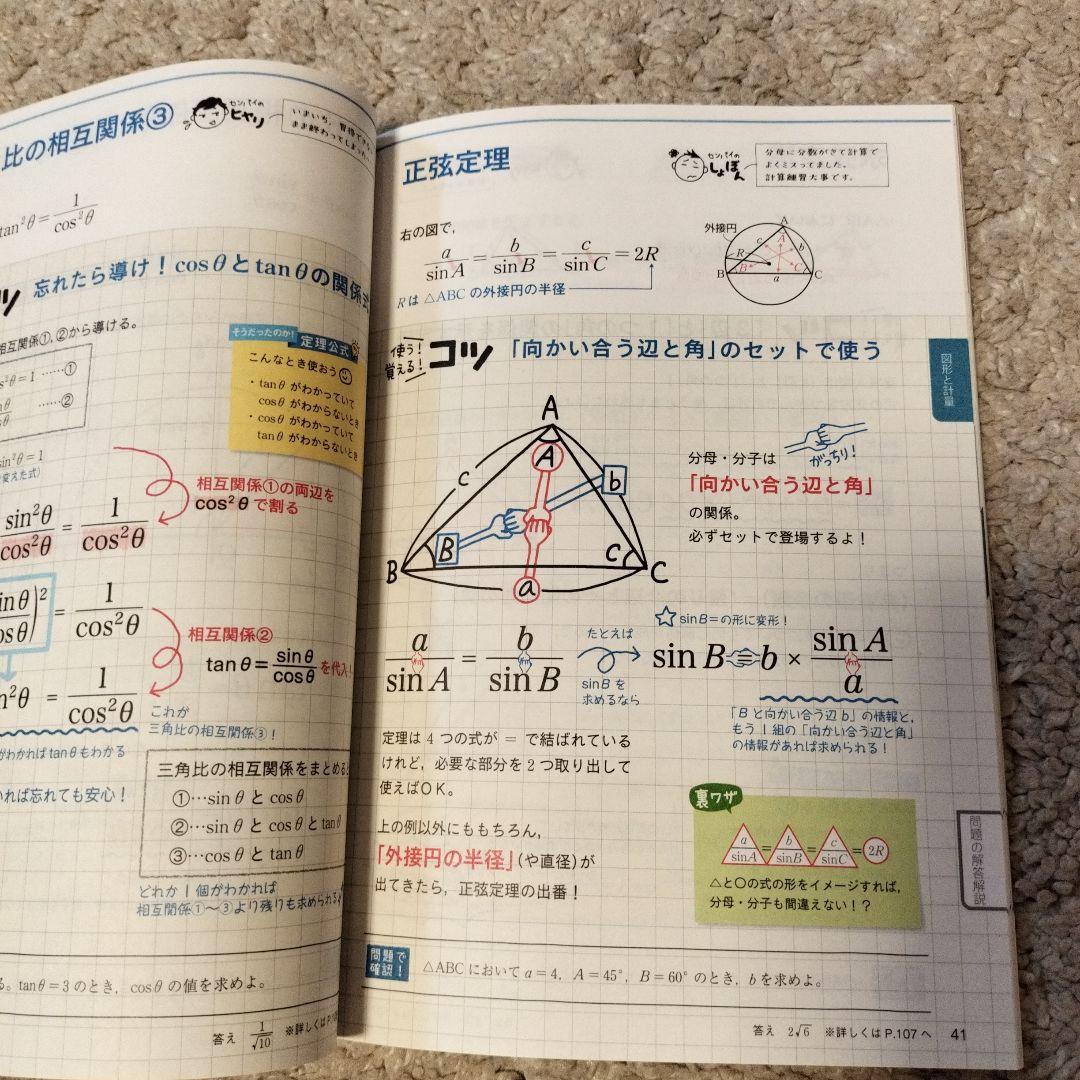 比の相互関係③
センパイの
ヒヤリ
いまいち, 習得で
まま終わってしまった
tan²θ = 1/cos²θ
忘れたら導け！cosθとtanθの関係式
コツ
相互関係①,②から導ける。
s²θ=1 ……①
……②
sin²θ=1
変えた式)
そうだったのか！
定理公式
こんなとき使おう
・tanθ がわかっていて
cosθ がわからないとき
・cosθ がわかっていて
tanθ がわからないとき
相互関係①の両辺を
cos²θ で割る
sin²θ/cos²θ = 1/cos²θ
相互関係②
tanθ = sinθ/cosθ を代入！
(sinθ/cosθ)² = 1/cos²θ
n²θ = 1/cos²θ
これが
三角比の相互関係③！
がわかればtanθもわかる
いれば忘れても安心！
三角比の相互関係をまとめると
①…sinθ と cosθ
②…sinθ と cosθ と tanθ
③…cosθ と tanθ
どれか1個がわかれば
相互関係①〜③より残りも求められる
る。tanθ=3 のとき, cosθ の値を求めよ。
答え 1/√10 ※詳しくは P.10
正弦定理
センパイの
しょぼん
分母に分数がきて計算で
よくミスってました。
計算練習大事です。
右の図で,
a/sinA = b/sinB = c/sinC = 2R
Rは△ABCの外接円の半径
外接円
A
A
c
b
R
B
B
C
C
a
使う！
覚える！
コツ
「向かい合う辺と角」のセットで使う
図形と計量
A
A
c
b
B
B
c
C
a
がっちり！
分母・分子は
「向かい合う辺と角」
の関係。
必ずセットで登場するよ！
a/sinA = b/sinB
たとえば
sinBを
求めるなら
☆sinB=の形に変形！
sinB = b × sinA/a
「Bと向かい合う辺b」の情報と,
もう1組の「向かい合う辺と角」
の情報があれば求められる！
定理は4つの式が＝で結ばれている
けれど, 必要な部分を2つ取り出して
使えばOK。
上の例以外にももちろん,
「外接円の半径」(や直径)が
出てきたら, 正弦定理の出番！
裏ワザ
a/sinA = b/sinB = c/sinC = 2R
△と○の式の形をイメージすれば,
分母・分子も間違えない！？
問題の解答解説
問題で
確認！
△ABCにおいて a=4, A=45°, B=60° のとき, b を求めよ。
答え 2√6 ※詳しくは P.107 へ 41